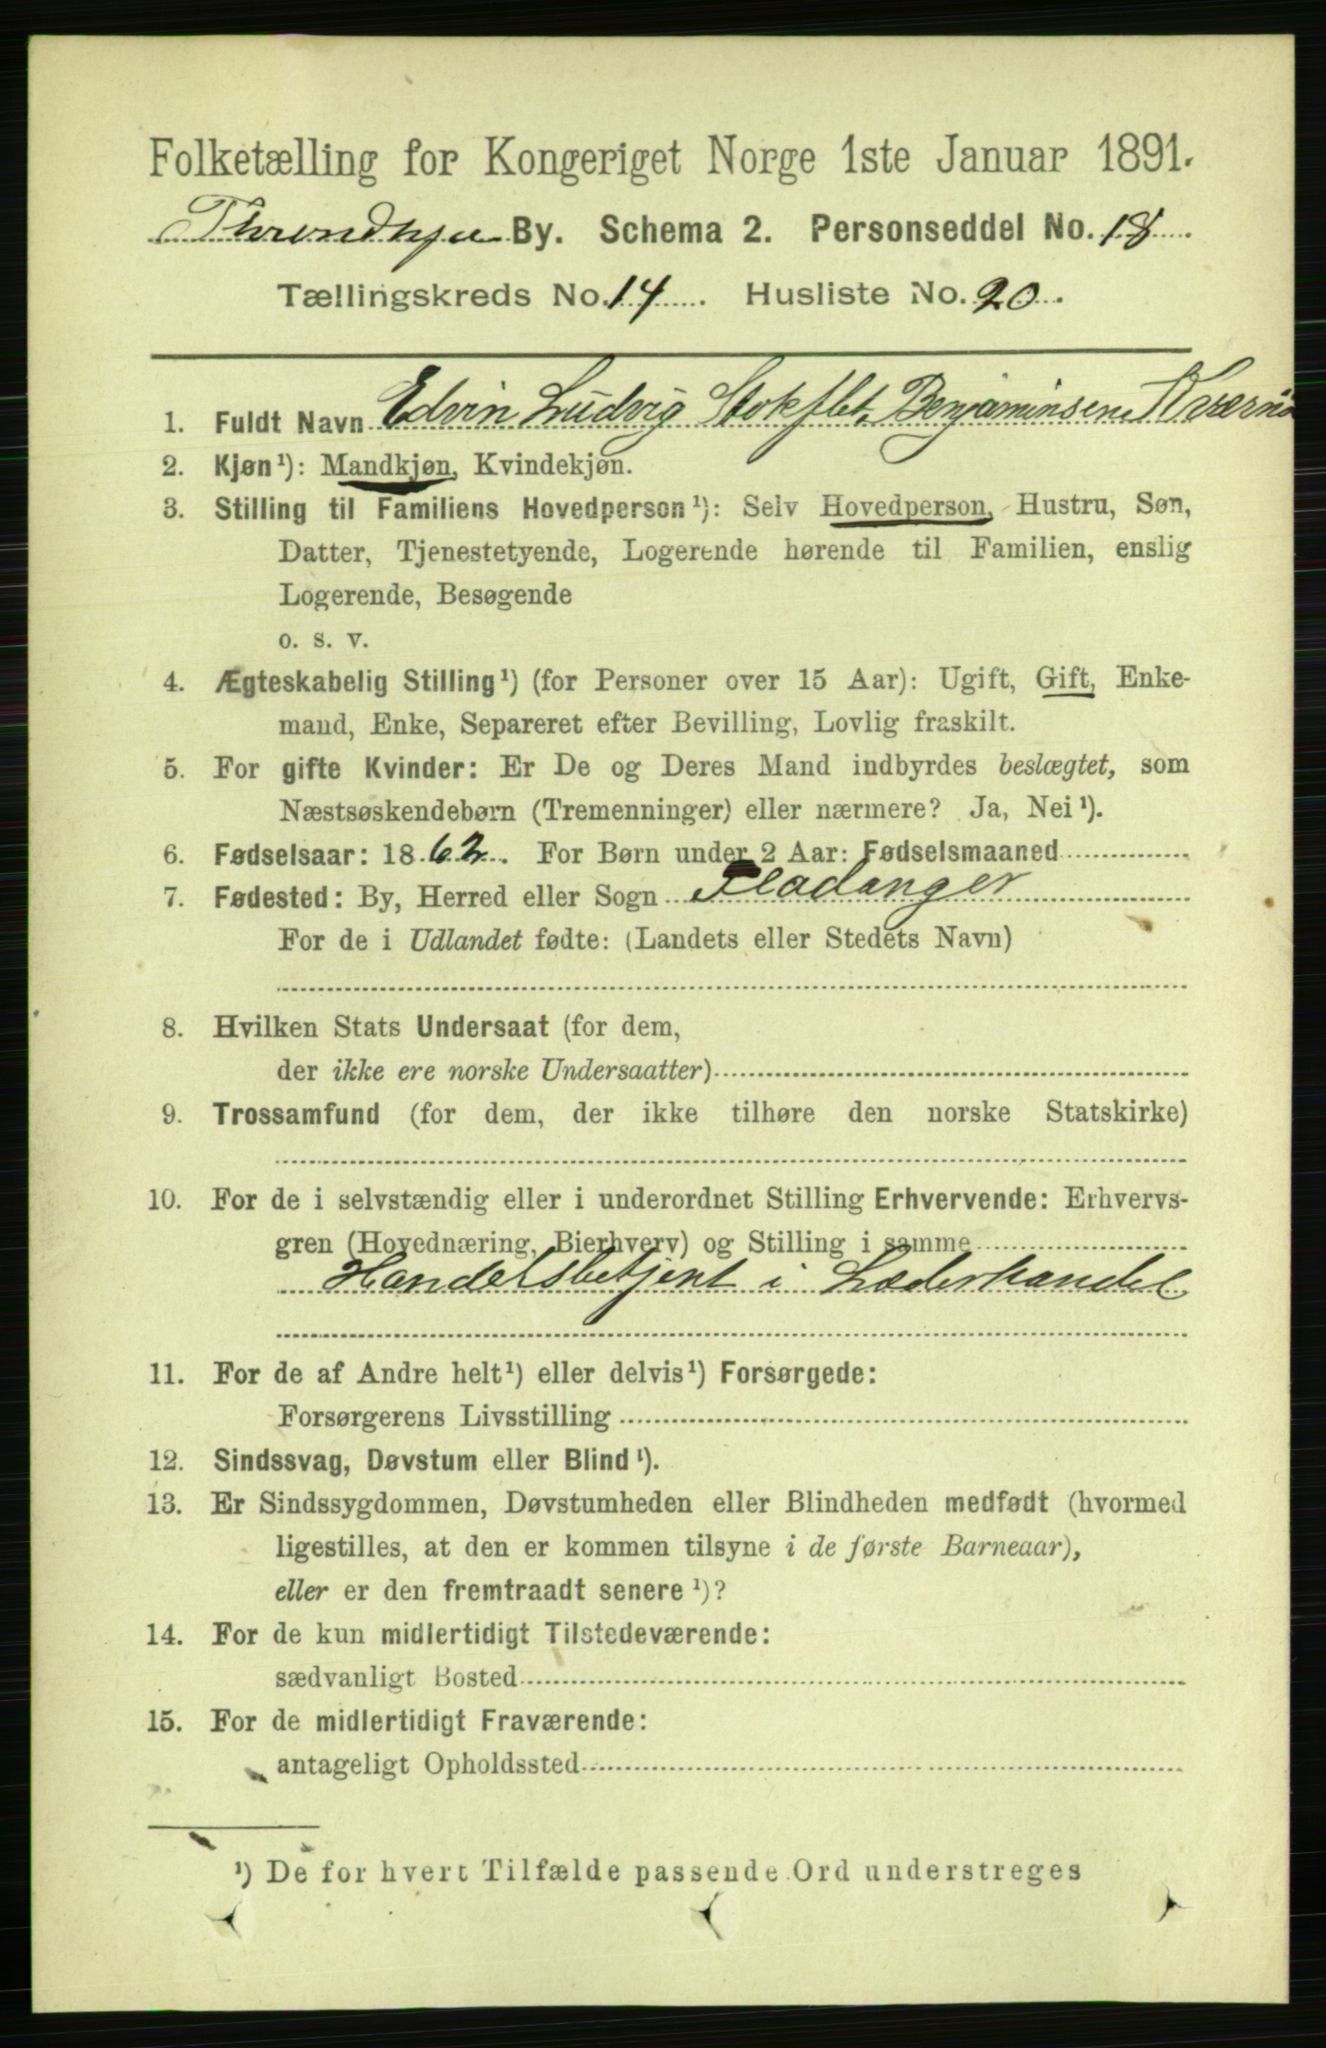 Folketælling for Kongeriget Norge 1ste Januar 1891.
Throndhjem By. Schema 2. Personseddel No. 18
Tællingskreds No. 14. Husliste No. 20.
1. Fuldt Navn Edvin Ludvig Stokflet Benjaminsen Kværnø
2. Kjøn¹): Mandkjøn, Kvindekjøn.
3. Stilling til Familiens Hovedperson¹): Selv Hovedperson, Hustru, Søn,
Datter, Tjenestetyende, Logerende hørende til Familien, enslig
Logerende, Besøgende
o. s. v.
4. Ægteskabelig Stilling¹) (for Personer over 15 Aar): Ugift, Gift, Enke-
mand, Enke, Separeret efter Bevilling, Lovlig fraskilt.
5. For gifte Kvinder: Er De og Deres Mand indbyrdes beslægtet, som
Næstsøskendebørn (Tremenninger) eller nærmere? Ja, Nei¹).
6. Fødselsaar: 1862. For Børn under 2 Aar: Fødselsmaaned
7. Fødested: By, Herred eller Sogn Fladanger
For de i Udlandet fødte: (Landets eller Stedets Navn)
8. Hvilken Stats Undersaat (for dem,
der ikke ere norske Undersaatter)
9. Trossamfund (for dem, der ikke tilhøre den norske Statskirke)
10. For de i selvstændig eller i underordnet Stilling Erhvervende: Erhvervs-
gren (Hovednæring, Bierhverv) og Stilling i samme
Handelsbetjent i Læderhandel
11. For de af Andre helt¹) eller delvis¹) Forsørgede:
Forsørgerens Livsstilling
12. Sindssvag, Døvstum eller Blind¹).
13. Er Sindssygdommen, Døvstumheden eller Blindheden medfødt (hvormed
ligestilles, at den er kommen tilsyne i de første Barneaar),
eller er den fremtraadt senere¹)?
14. For de kun midlertidigt Tilstedeværende:
sædvanligt Bosted
15. For de midlertidigt Fraværende:
antageligt Opholdssted
¹) De for hvert Tilfælde passende Ord understreges